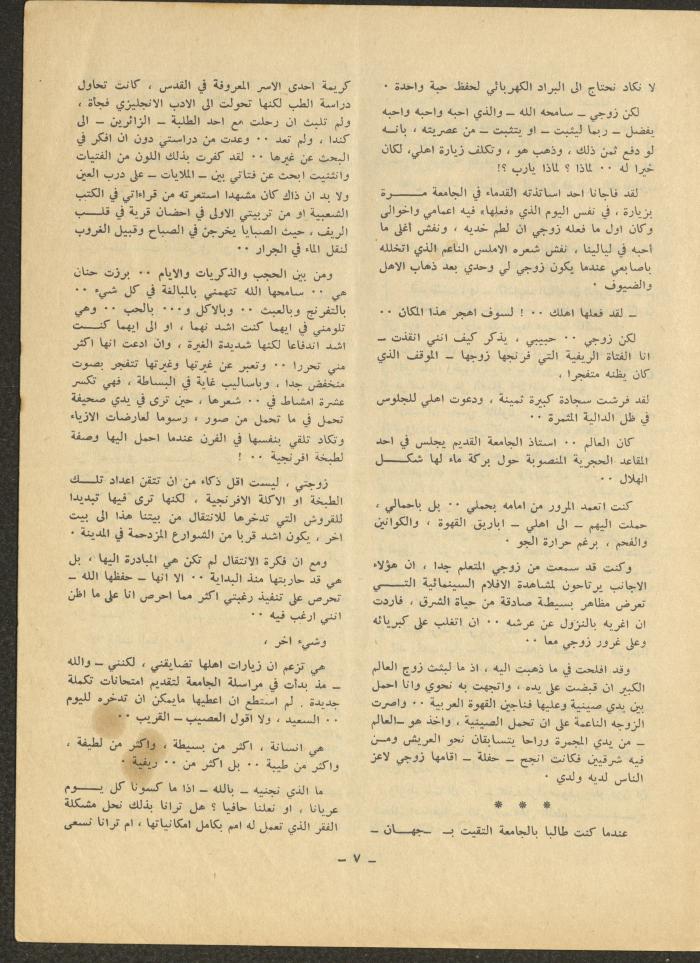 لا نكاد نحتاج الى البراد الكهربائي لحفظ حبة واحدة ٠
لكن زوجي ــ سامحه الله ــ والذي احبه واحبه واحبه
يفضل ــ ربما ليثبت ــ او يتثبت ــ من عصريته ، بانــه
لو دفع ثمن ذلك ، وذهب هو ، وتكلف زيارة اهلي، لكان
خيرا له ٠٠ لماذا ؟ لماذا يارب ؟!
لقد فاجانا احد اساتذته القدماء في الجامعة مــــرة
بزيارة ، في نفس اليوم الذي «فعلها» فيه اعمامي واخوالى
وكان اول ما فعله زوجي ان لطم خديه ، ونفش أغلى ما
احبه في ليالينا ، نفش شعره الاملس الناعم الذي اتخلله
باصابعي عندما يكون زوجي لي وحدي بعد ذهاب الاهل
والضيوف ٠
ــ لقد فعلها اهلك ٠٠ ! لسوف اهجر هذا المكان ٠٠
لكن زوجي ٠٠ حبيبي ، يذكر كيف انني انقذت ــ
انا الفتاة الريفية التي فرنجها زوجها ــ الموقف الذي
كان يظنه متفجرا ،
لقد فرشت سجادة كبيرة ثمينة ، ودعوت اهلي للجلوس
في ظل الدالية المثمرة ٠٠
كان العالم ٠٠ استاذ الجامعة القديم يجلس في احد
المقاعد الحجرية المنصوبة حول بركة ماء لها شكــــل
الهلال ٠٠
كنت اتعمد المرور من امامه بحملي ٠٠ بل باحمالي ،
حملت اليهم ــ الى اهلي ــ اباريق القهوة ، والكوانين
والفحم ، برغم حرارة الجو ٠
وكنت قد سمعت من زوجي المتعلم جدا ، ان هؤلاء
الاجانب يرتاحون لمشاهدة الافلام السينمائية التـــــي
تعرض مظاهر بسيطة صادقة من حياة الشرق ، فاردت
ان اغريه بالنزول عن عرشه ٠٠ ان اتغلب على كبريائه
وعلى غرور زوجي معا ٠٠
وقد افلحت في ما ذهبت اليه ، اذ ما لبثت زوج العالم
الكبير ان قبضت على يده ، واتجهت به نحوي وانا احمل
بين يدي صينية وعليها فناجين القهوة العربية ٠٠ واصرت
الزوجه الناعمة على ان تحمل الصينية ، واخذ هو ــالعالم
ــ من يدي المجمرة وراحا يتسابقان نحو العريش ومــن
فيه شرقيين فكانت انجح ــ حفلة ــ اقامها زوجي لاعز
الناس لديه ولدي ٠
* * *
عندما كنت طالبا بالجامعة التقيت بـ ــجهــان ــ
كريمة احدى الاسر المعروفة في القدس ، كانت تحاول
دراسة الطب لكنها تحولت الى الادب الانجليزي فجأة ،
ولم تلبث ان رحلت مع احد الطلبة ــ الزائرين ــ الى
كندا ، ولم تعد ٠٠ وعدت من دراستي دون ان افكر في
البحث عن غيرها ٠٠ لقد كفرت بذلك اللون من الفتيات
وانثنيت ابحث عن فتاتي بين ــ الملايات ــ على درب العين
ولا بد ان ذاك كان مشهدا استعرته من قراءاتي في الكتب
الشعبية او من تربيتي الاولى في احضان قرية في قلــــب
الريف ، حيث الصبايا يخرجن في الصباح وقبيل الغروب
لنقل الماء في الجرار ٠٠
ومن بين الحجب والذكريات والايام ٠٠ برزت حنان
هي ٠٠ سامحها الله تتهمني بالمبالغة في كل شيء ٠٠
بالتفرنج وبالعبث ٠٠ وبالاكل و٠٠٠ بالحب ٠٠ وهي
تلومني في ايهما كنت اشد نهما ، او الى ايهما كنــــت
اشد اندفاعا لكنها شديدة الغيرة ، وان ادعت انها اكثر
مني تحررا ٠٠ وتعبر عن غيرتها وغيرتها تتفجر بصوت
منخفض جدا ، وباساليب غاية في البساطة ، فهي تكسر
عشرة امشاط في ٠٠ شعرها ، حين ترى في يدي صحيفة
تحمل في ما تحمل من صور ، رسوما لعارضات الازياء
وتكاد تلقي بنفسها في الفرن عندما احمل اليها وصفة
لطبخة افرنجية ٠٠ !
زوجتي ، ليست اقل ذكاء من ان تتقن اعداد تلــــك
الطبخة او الاكلة الافرنجية ، لكنها ترى فيها تبديدا
للقروش التي تدخرها للانتقال من بيتنا هذا الى بيت
اخر ، يكون اشد قربا من الشوارع المزدحمة في المدينة ٠
ومع ان فكرة الانتقال لم تكن هي المبادرة اليها ، بل
هي قد حاربتها منذ البداية ٠٠ الا انها ــ حفظها الله ــ
تحرص على تنفيذ رغبتي اكثر مما احرص انا على ما اظن
انني ارغب فيه ٠٠
وشيء اخر ،
هي تزعم ان زيارات اهلها تضايقني ، لكنني ــ والله
ــ مذ بدأت في مراسلة الجامعة لتقديم امتحانات تكملة
جديدة ٠ لم استطع ان اعطيها مايمكن ان تدخره لليوم
٠٠ السعيد ، ولا اقول العصيب ــ القريب ٠٠
هي انسانة ، اكثر من بسيطة ، واكثر من لطيفة ،
واكثر من طيبة ٠٠ بل اكثر من ٠٠ ريفية ٠
ما الذي نجنيه ــ بالله ــ اذا ما كسونا كل يــــوم
عريانا ، او نعلنا حافيا ؟ هل ترانا بذلك نحل مشكلة
الفقر الذي تعمل له امم بكامل امكانياتها ، ام ترانا نسعى
ــ ٧ ــ